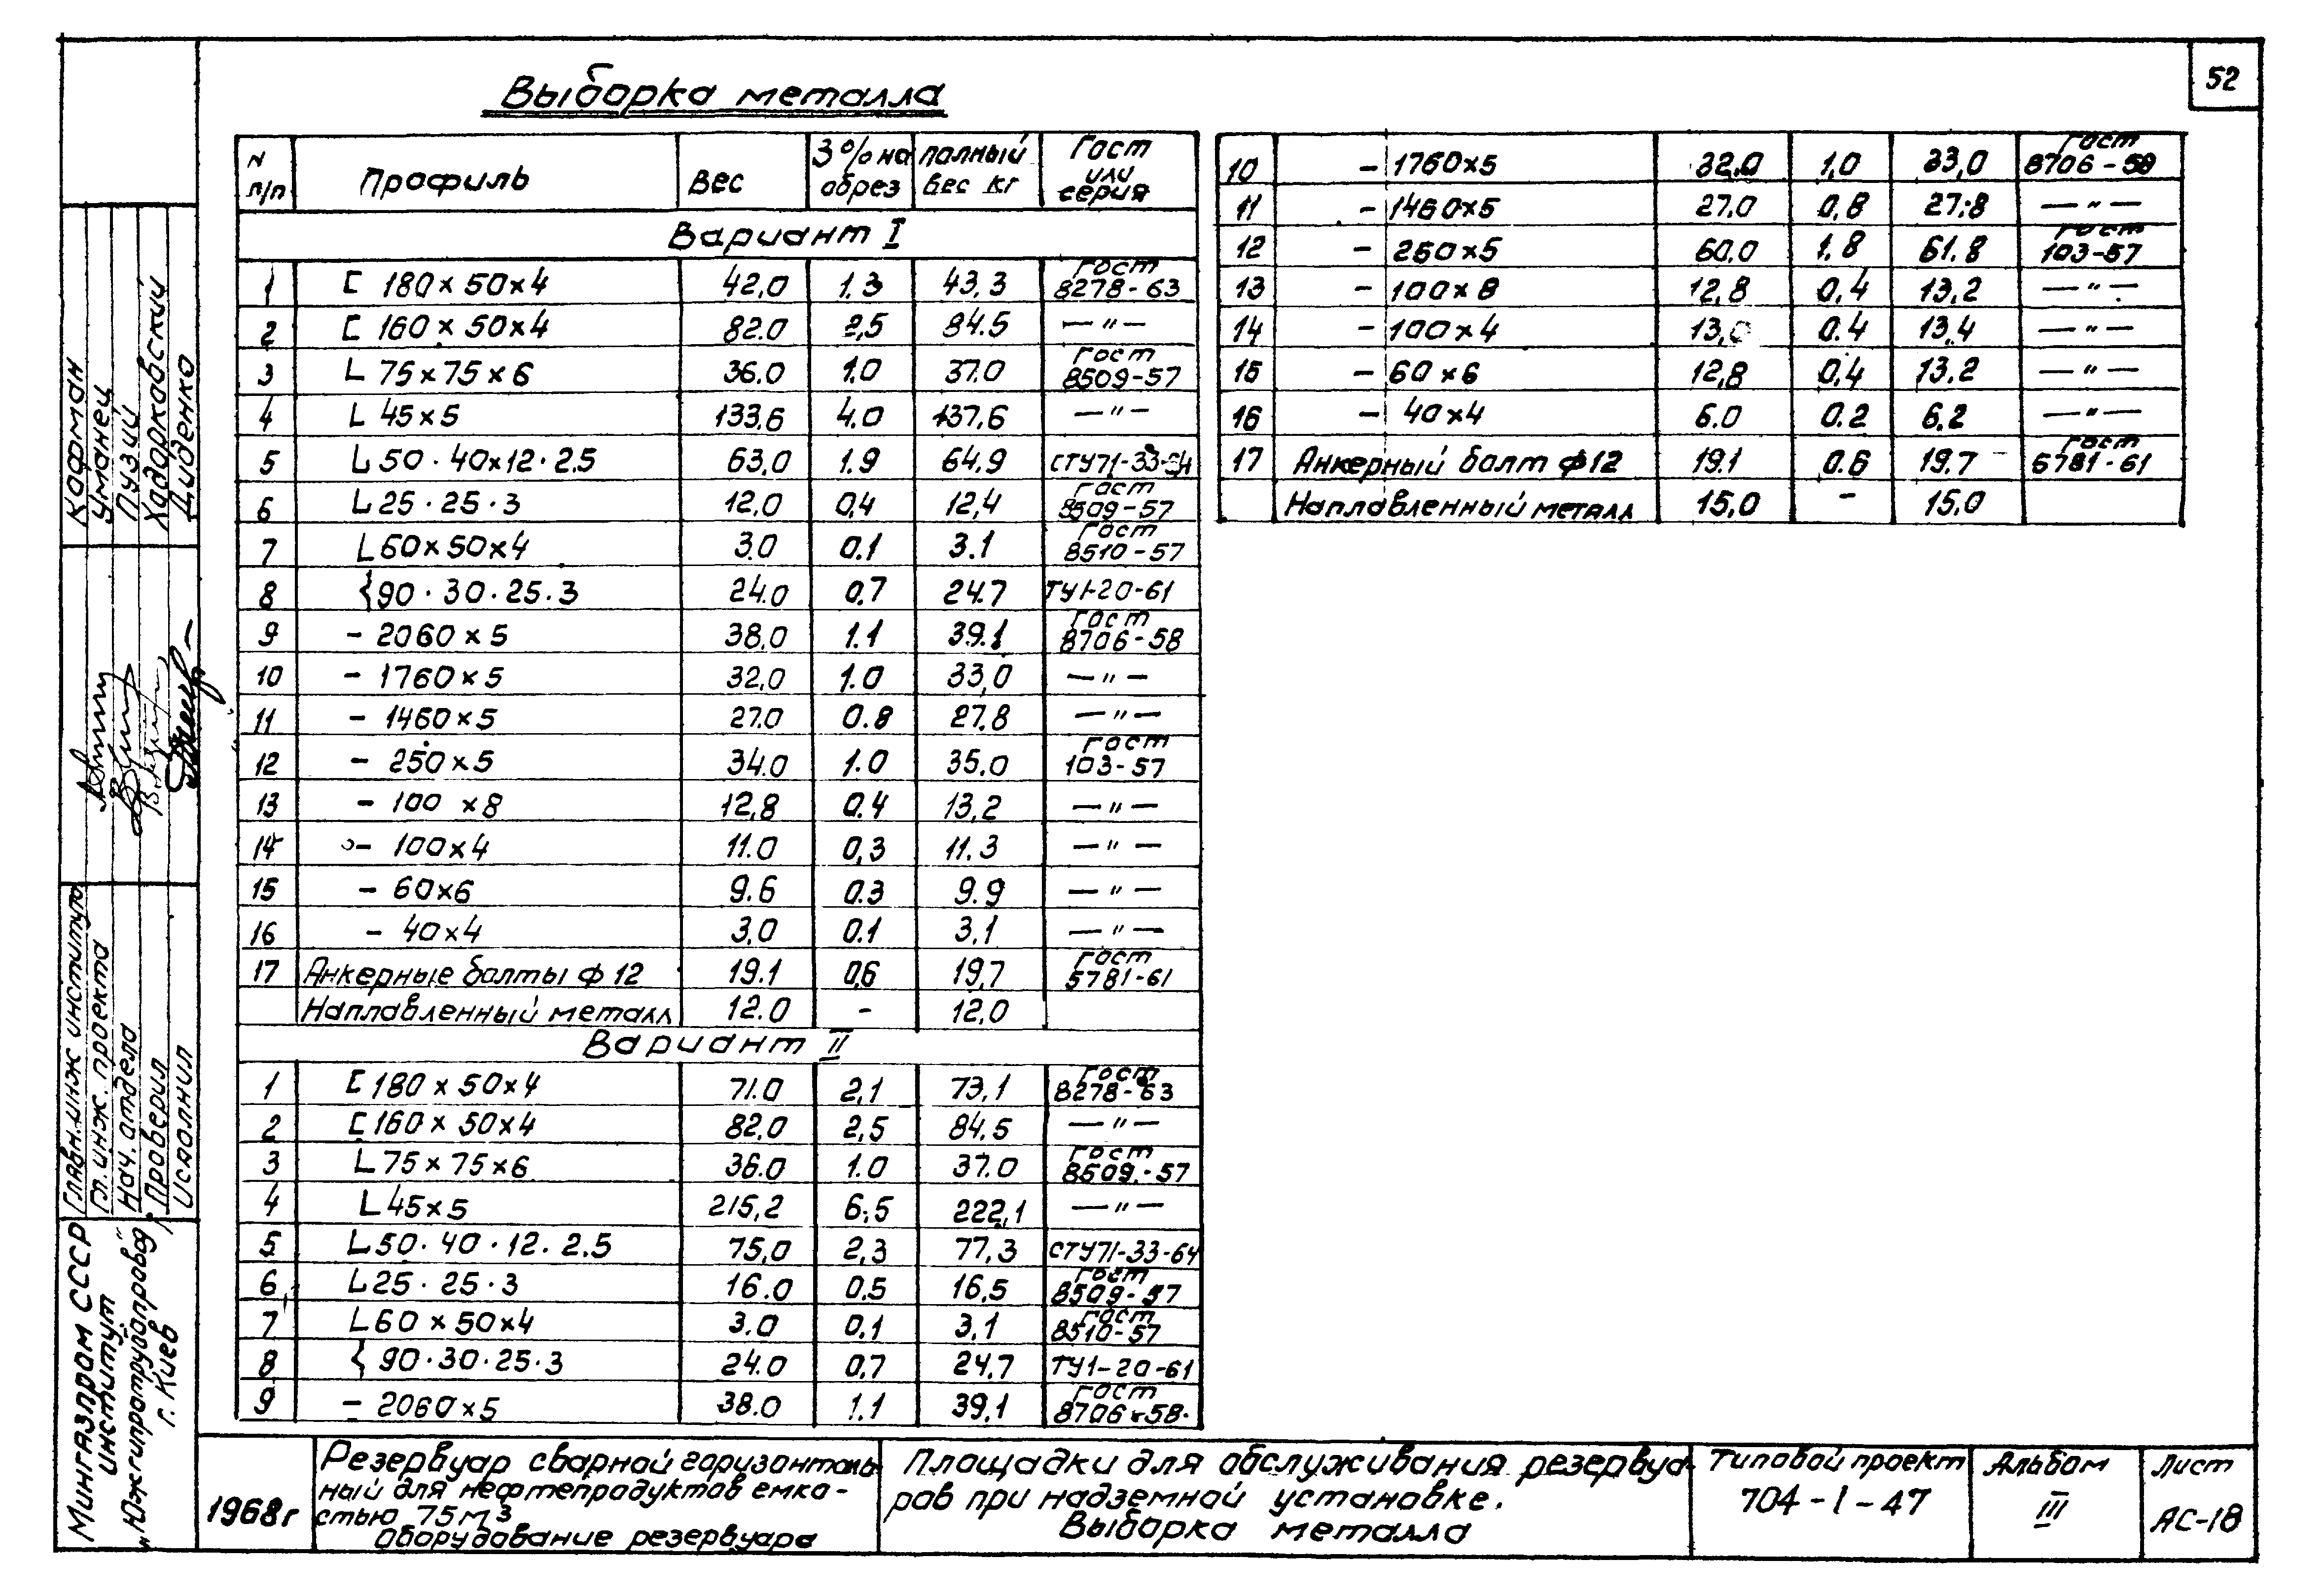 52
Выборка металла
N п/п Профиль Вес 3% на обрез полный вес кг Гост или серия
Вариант I
1 [ 180×50×4 42,0 1.3 43,3 Гост 8278-63
2 [ 160×50×4 82.0 2,5 84.5 —"—
3 L 75×75×6 36.0 1.0 37.0 Гост 8509-57
4 L 45×5 133,6 4.0 137,6 —"—
5 L 50·40×12·2.5 63,0 1.9 64,9 СТУ71-33-64
6 L 25·25·3 12,0 0,4 12,4 Гост 8509-57
7 L 60×50×4 3.0 0.1 3.1 Гост 8510-57
8 {90·30·25·3 24.0 0,7 24.7 ТУ1-20-61
9 - 2060×5 38,0 1.1 39.1 Гост 8706-58
10 - 1760×5 32,0 1.0 33,0 —"—
11 - 1460×5 27.0 0.8 27.8 —"—
12 - 250×5 34.0 1.0 35.0 Гост 103-57
13 - 100×8 12,8 0.4 13,2 —"—
14 - 100×4 11.0 0,3 11.3 —"—
15 - 60×6 9.6 0.3 9.9 —"—
16 - 40×4 3,0 0.1 3,1 —"—
17 Анкерные болты ф 12 19.1 0,6 19,7 Гост 5781-61
Наплавленный металл 12.0 - 12,0
Вариант II
1 [ 180×50×4 71.0 2,1 73,1 Гост 8278-63
2 [ 160×50×4 82,0 2,5 84,5 —"—
3 L 75×75×6 36.0 1.0 37.0 Гост 8509-57
4 L 45×5 215,2 6,5 222,1 —"—
5 L 50·40·12·2.5 75,0 2,3 77,3 СТУ71-33-64
6 L 25·25·3 16.0 0,5 16,5 Гост 8509-57
7 L 60×50×4 3.0 0,1 3,1 Гост 8510-57
8 { 90·30·25·3 24.0 0,7 24,7 ТУ1-20-61
9 - 2060×5 38.0 1.1 39,1 Гост 8706-58
10 - 1760×5 32.0 1,0 33,0 Гост 8706-58
11 - 1460×5 27.0 0,8 27.8 —"—
12 - 250×5 60,0 1.8 61.8 Гост 103-57
13 - 100×8 12,8 0,4 13,2 —"—
14 - 100×4 13,0 0.4 13,4 —"—
15 - 60×6 12,8 0,4 13.2 —"—
16 - 40×4 6.0 0.2 6.2 —"—
17 Анкерный болт ф 12 19.1 0.6 19.7 Гост 5781-61
Наплавленный металл 15,0 - 15,0
Кофман
Уманец
Пузий
Хадарковский
Диденко
Главн. инж института
Гл. инж. проекта
Нач. отдела
Проверил
Исполнил
Мингазпром СССР
институт
„Южгипротрубопровод"
г. Киев
1968г
Резервуар сварной горизонталь-
ный для нефтепродуктов емко-
стью 75 м3
Оборудование резервуара
Площадки для обслуживания резервуа-
ров при надземной установке.
Выборка металла
Типовой проект
704-1-47
Альбом
III
Лист
АС-18